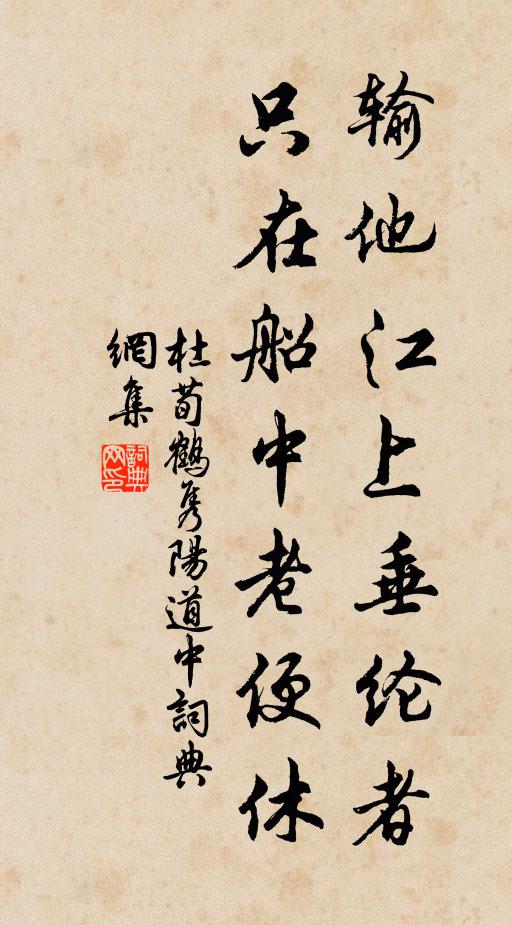 输他江上垂纶者
只在船中老便休
杜荀鹤隽陽道中詞典
網集
詞典
网印